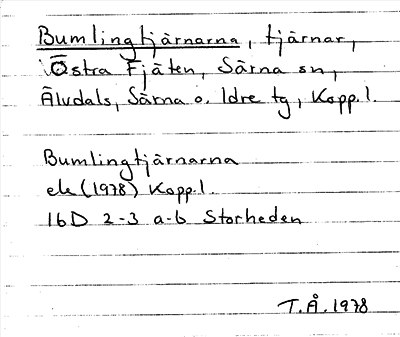 Bumlingtjärnarna, tjärnar,
Östra Fjäten, Särna sn,
Älvdals, Särna o. Idre tg, Kopp.l.
Bumlingtjärnarna
ek (1978) Kopp.l.
16D 2-3 a-b Storheden
T.Å. 1978